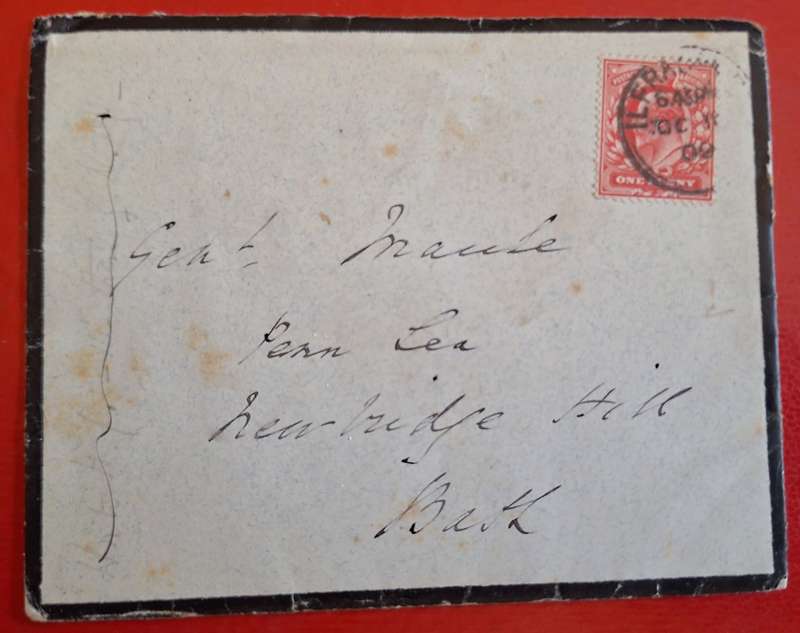 ILFRA
OC
09
ONE PENNY
Genl. Maule
Penn Lea
Newbridge Hill
Bath